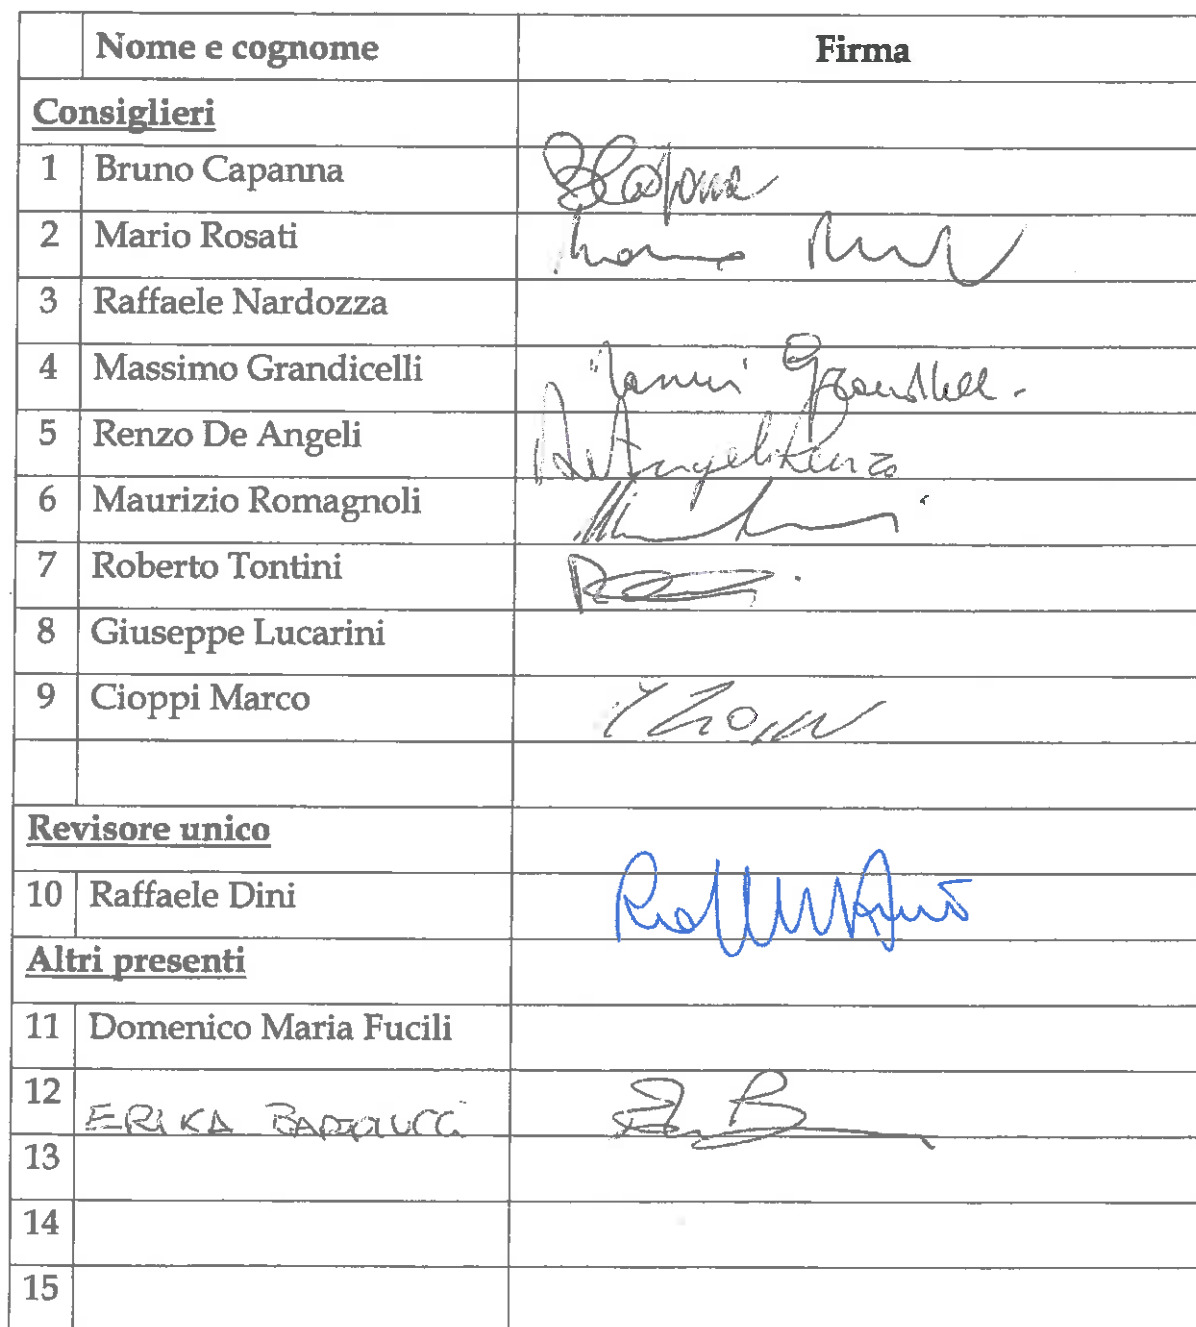 Nome e cognome Firma
Consiglieri
1 Bruno Capanna
2 Mario Rosati
3 Raffaele Nardozza
4 Massimo Grandicelli
5 Renzo De Angeli De Angeli Renzo
6 Maurizio Romagnoli
7 Roberto Tontini
8 Giuseppe Lucarini
9 Cioppi Marco
Revisore unico
10 Raffaele Dini
Altri presenti
11 Domenico Maria Fucili
12 ERIKA
13
14
15